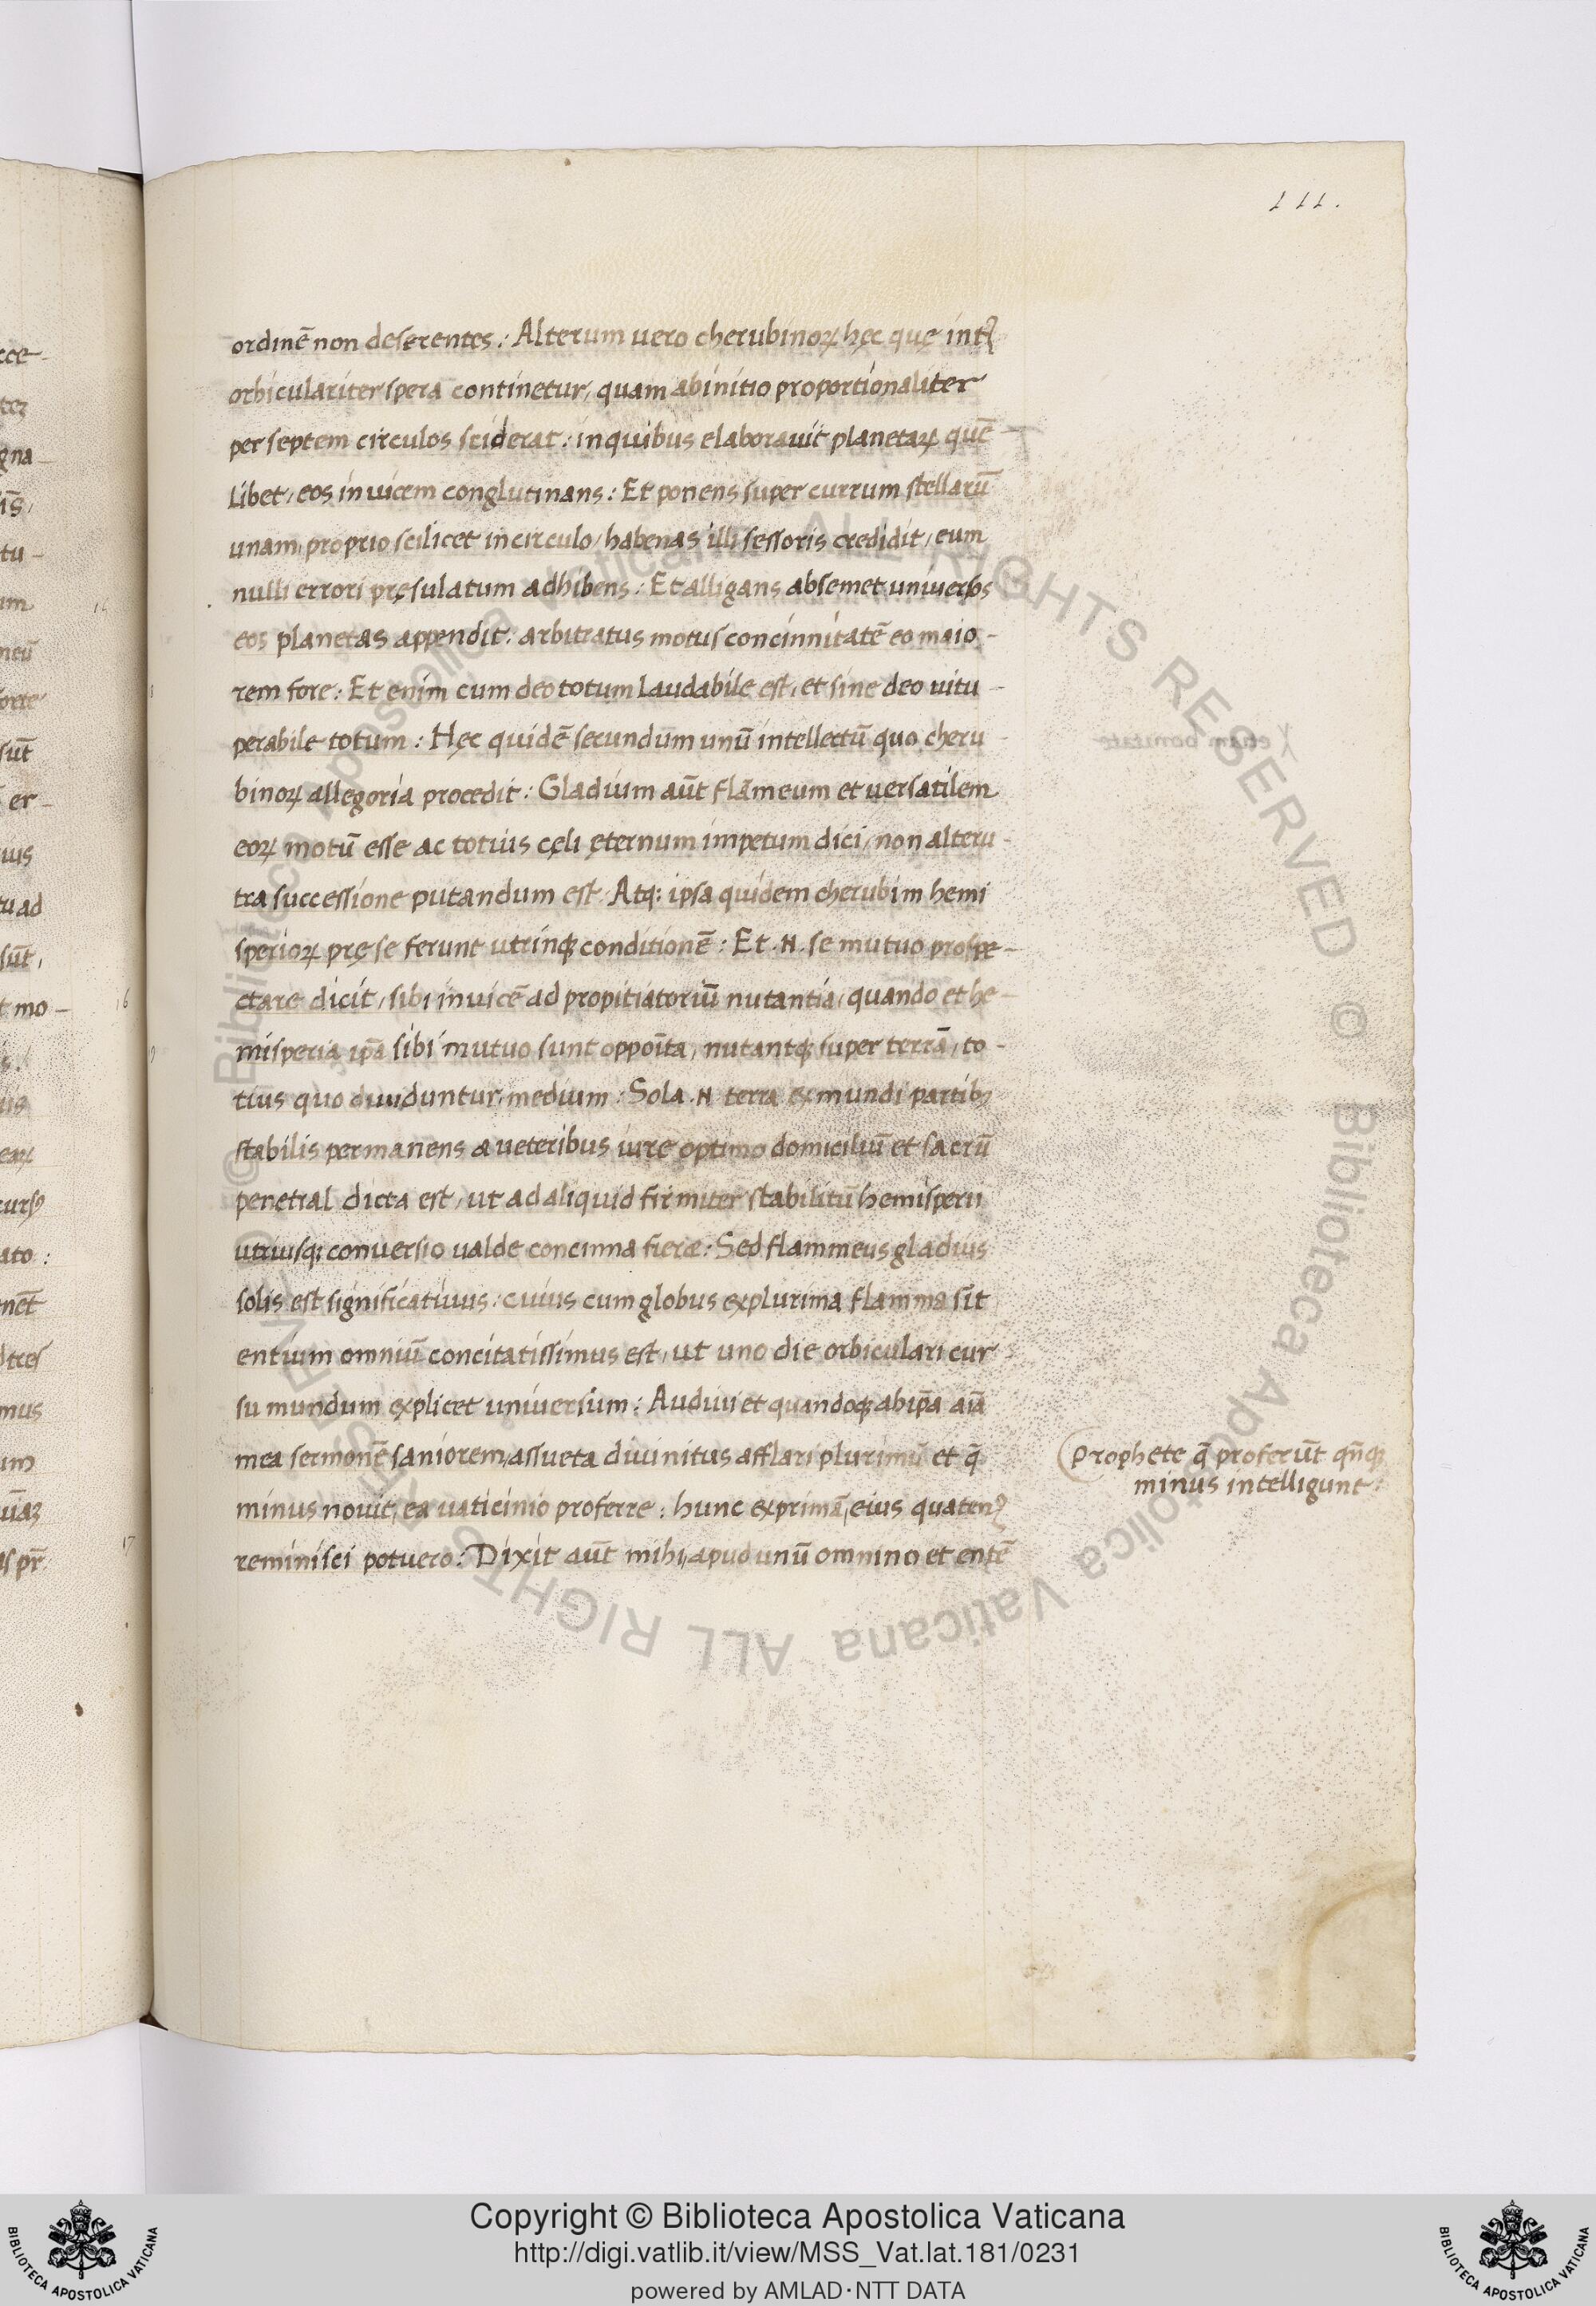 111.
ordinē non deserentes: Alterum uero cherubinoꝝ hęc quę intꝰ
orbiculariter spera continetur, quam ab initio proportionaliter
per septem circulos sciderat: in quibus elaborauit planetaꝝ quē
libet, eos inuicem conglutinans: Et ponens super currum stellarū
unam, proprio scilicet in circulo, habenas illi sessoris credidit, eum
nulli errori pręsulatum adhibens: Et alligans ab semet universos
eos planetas appendit: arbitratus motus concinnitatē eo maio-
rem fore: Et enim cum deo totum laudabile est, et sine deo uitu-
perabile totum: Hęc quidē secundum unū intellectū quo cheru
binoꝝ allegoria procedit: Gladium aūt flāmeum et uersatilem
eoꝝ motū esse ac totius cęli ęternum impetum dici, non alteru-
tra successione putandum est Atq: ipsa quidem cherubim hemi
sperioꝝ prę se ferunt utrinqꝫ conditionē: Et .N. se mutuo prospe-
ctare dicit, sibi inuicē ad propitiatoriū nutantia, quando et he-
misperia ip̄a sibi mutuo sunt oppoīta, nutantqꝫ super terrā, to-
tius quo diuiduntur medium: Sola .N. terra ex mundi partibꝫ
stabilis permanens a ueteribus iure optimo domiciliū et sacrū
penetral dicta est, ut ad aliquid firmiter stabilitū hemisperii
utriusqꝫ conuersio ualde concinna fieræ: Sed flammeus gladius
solis est significatiuus: cuius cum globus ex plurima flamma sit
entium omniū concitatissimus est, ut uno die orbiculari cur
su mundum explicet universum: Audiui et quandoqꝫ ab ip̄a aīa
mea sermonē saniorem, assueta diuinitus afflari plurimū et q̄
minus nouit, ea uaticinio proferre: hunc exprimā, eius quatenꝰ
reminisci potuero: Dixit aūt mihi, apud unū omnino et entē
Prophete q̄ proferūt qn̄qꝫ
minus intelligunt:
Copyright © Biblioteca Apostolica Vaticana
http://digi.vatlib.it/view/MSS_Vat.lat.181/0231
powered by AMLAD·NTT DATA